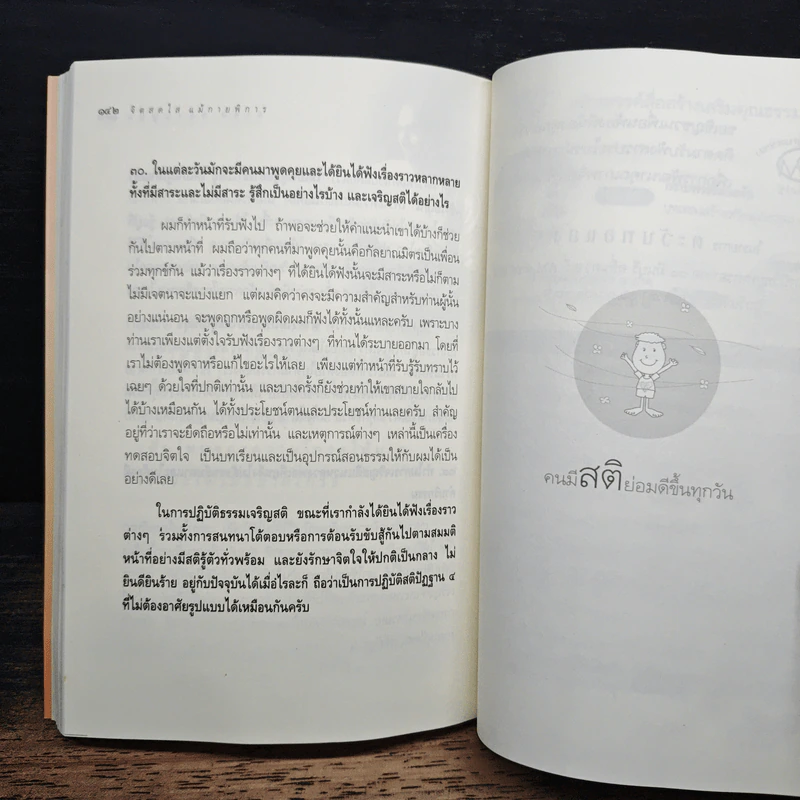 ๑๔๒ จิตสดใส แม้กายพิการ
๓๐. ในแต่ละวันมักจะมีคนมาพูดคุยและได้ยินได้ฟังเรื่องราวหลากหลาย
ทั้งที่มีสาระและไม่มีสาระ รู้สึกเป็นอย่างไรบ้าง และเจริญสติได้อย่างไร
ผมก็ทำหน้าที่รับฟังไป ถ้าพอจะช่วยให้คำแนะนำเขาได้บ้างก็ช่วย
กันไปตามหน้าที่ ผมถือว่าทุกคนที่มาพูดคุยนั้นคือกัลยาณมิตรเป็นเพื่อน
ร่วมทุกข์กัน แม้ว่าเรื่องราวต่างๆ ที่ได้ยินได้ฟังนั้นจะมีสาระหรือไม่ก็ตาม
ไม่มีเจตนาจะแบ่งแยก แต่ผมคิดว่าคงจะมีความสำคัญสำหรับท่านผู้นั้น
อย่างแน่นอน จะพูดถูกหรือพูดผิดผมก็ฟังได้ทั้งนั้นแหละครับ เพราะบาง
ท่านเราเพียงแต่ตั้งใจรับฟังเรื่องราวต่างๆ ที่ท่านได้ระบายออกมา โดยที่
เราไม่ต้องพูดจาหรือแก้ไขอะไรให้เลย เพียงแต่ทำหน้าที่รับรู้รับทราบไว้
เฉยๆ ด้วยใจที่ปกติเท่านั้น และบางครั้งก็ยังช่วยทำให้เขาสบายใจกลับไป
ได้บ้างเหมือนกัน ได้ทั้งประโยชน์ตนและประโยชน์ท่านเลยครับ สำคัญ
อยู่ที่ว่าเราจะยึดถือหรือไม่เท่านั้น และเหตุการณ์ต่างๆ เหล่านี้เป็นเครื่อง
ทดสอบจิตใจ เป็นบทเรียนและเป็นอุปกรณ์สอนธรรมให้กับผมได้เป็น
อย่างดีเลย
ในการปฏิบัติธรรมเจริญสติ ขณะที่เรากำลังได้ยินได้ฟังเรื่องราว
ต่างๆ ร่วมทั้งการสนทนาโต้ตอบหรือการต้อนรับขับสู้กันไปตามสมมติ
หน้าที่อย่างมีสติรู้ตัวทั่วพร้อม และยังรักษาจิตใจให้ปกติเป็นกลาง ไม่
ยินดียินร้าย อยู่กับปัจจุบันได้เมื่อไรละก็ ถือว่าเป็นการปฏิบัติสติปัฏฐาน ๔
ที่ไม่ต้องอาศัยรูปแบบได้เหมือนกันครับ
คนมีสติย่อมดีขึ้นทุกวัน